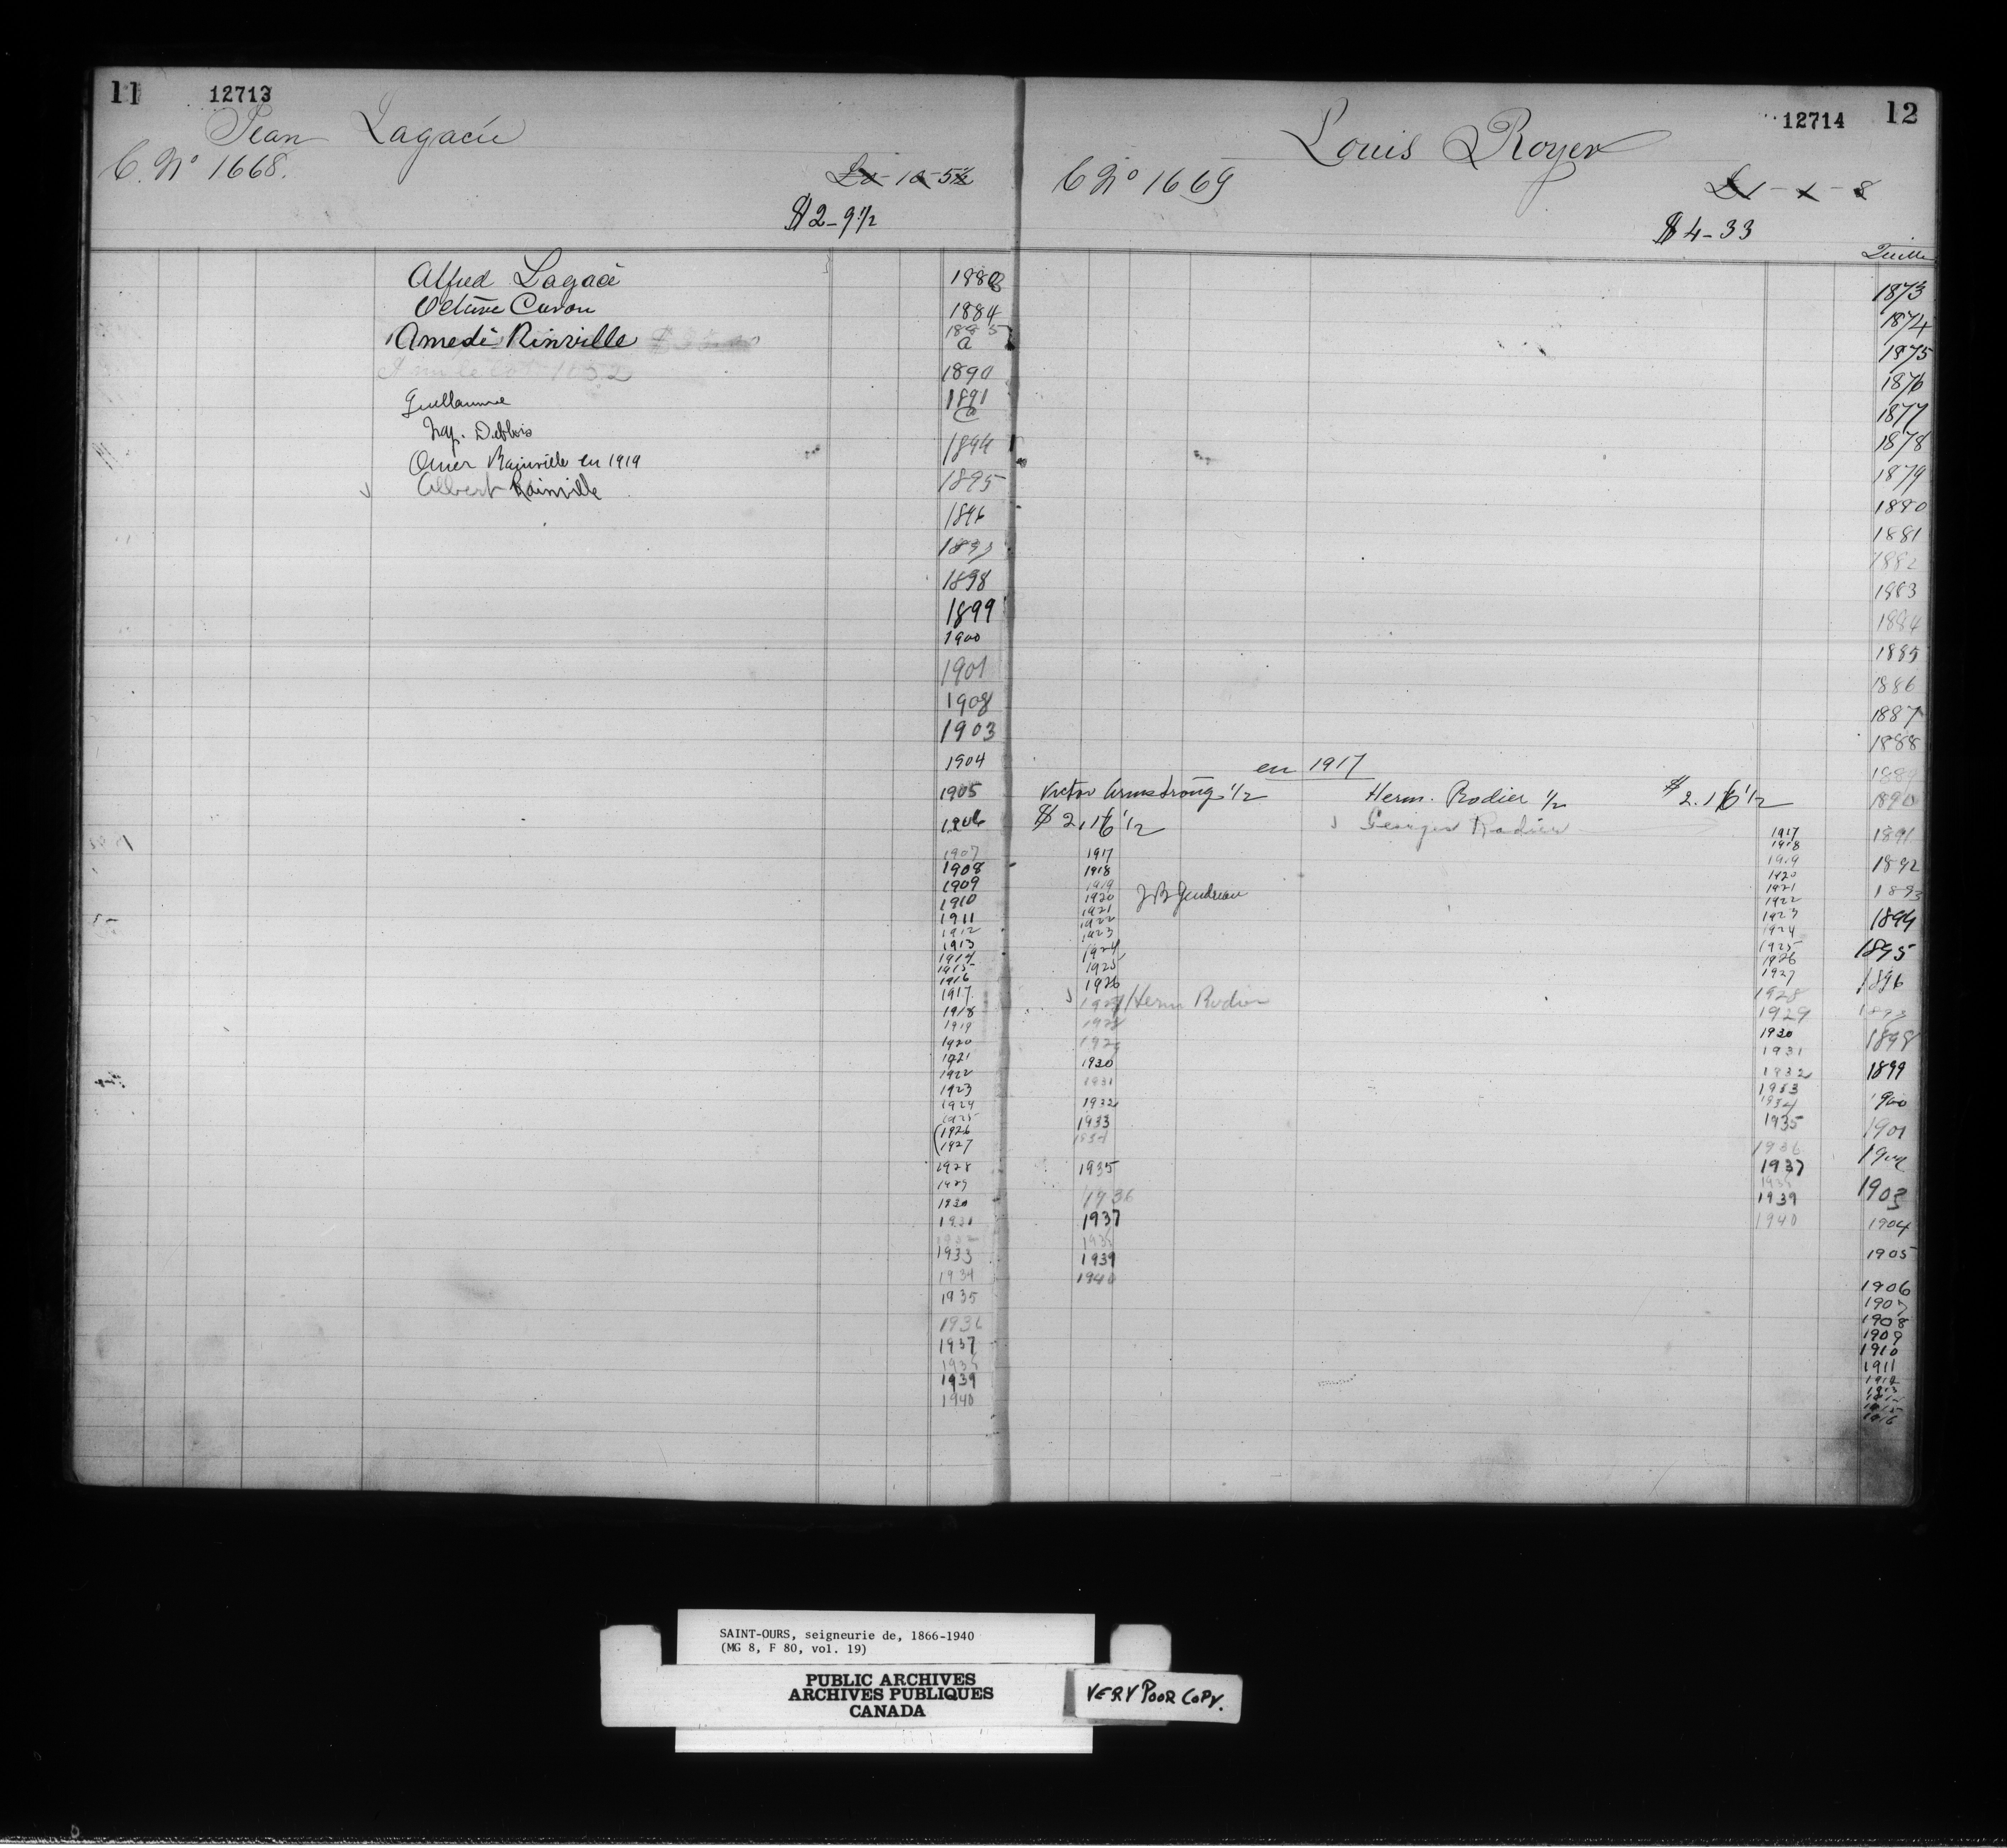 11 12713
Jean Lagacie
C. No 1668.
£0-10-5½
$2-9½
Alfred Lagacé 1880
Octave Caron 1884
Amedé Rinville 1885
a
1890
Guillaume 1891
a
Nap. Deblois
1894
Omer Rainville en 1919
Albert Rainville 1895
1896
1897
1898
1899
1900
1901
1902
1903
1904
1905
1906
1907
1908
1909
1910
1911
1912
1913
1914
1915
1916
1917
1918
1919
1920
1921
1922
1923
1924
1925
1926
1927
1928
1929
1930
1931
1932
1933
1934
1935
1936
1937
1938
1939
1940
12714 12
Louis Royer
C No 1669
£1-1-8
$4-33
1873
1874
1875
1876
1877
1878
1879
1880
1881
1882
1883
1884
1885
1886
1887
1888
1889
1890
1891
1892
1893
1894
1895
1896
1897
1898
1899
1900
1901
1902
1903
1904
1905
1906
1907
1908
1909
1910
1911
1912
1913
1914
1915
1916
en 1917
Victor Armstrong ½ Herm. Rodier ½ $2.16½
$2.16½ Georges Rodier
1917
1918
1919
1920 J B Gendreau
1921
1922
1923
1924
1925
1926
1927 Herm Rodier
1928
1929
1930
1931
1932
1933
1934
1935
1936
1937
1938
1939
1940
1917
1918
1919
1920
1921
1922
1923
1924
1925
1926
1927
1928
1929
1930
1931
1932
1933
1934
1935
1936
1937
1938
1939
1940
SAINT-OURS, seigneurie de, 1866-1940
(MG 8, F 80, vol. 19)
PUBLIC ARCHIVES
ARCHIVES PUBLIQUES
CANADA
VERY POOR COPY.